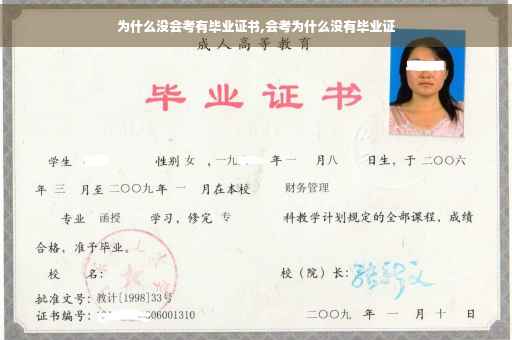 为什么没会考有毕业证书,会考为什么没有毕业证
成人高等教育
毕业证书
学生 性别 女 ,一九 年 一 月 八 日生,于 二〇〇六
年 三 月至 二〇〇九 年 一 月在本校 财务管理
专业 函授 学习,修完 专 科教学计划规定的全部课程,成绩
合格,准予毕业。
校 名: 校(院)长:
批准文号:教计[1998]33号
证书编号: 06001310 二〇〇九 年 一 月 十 日